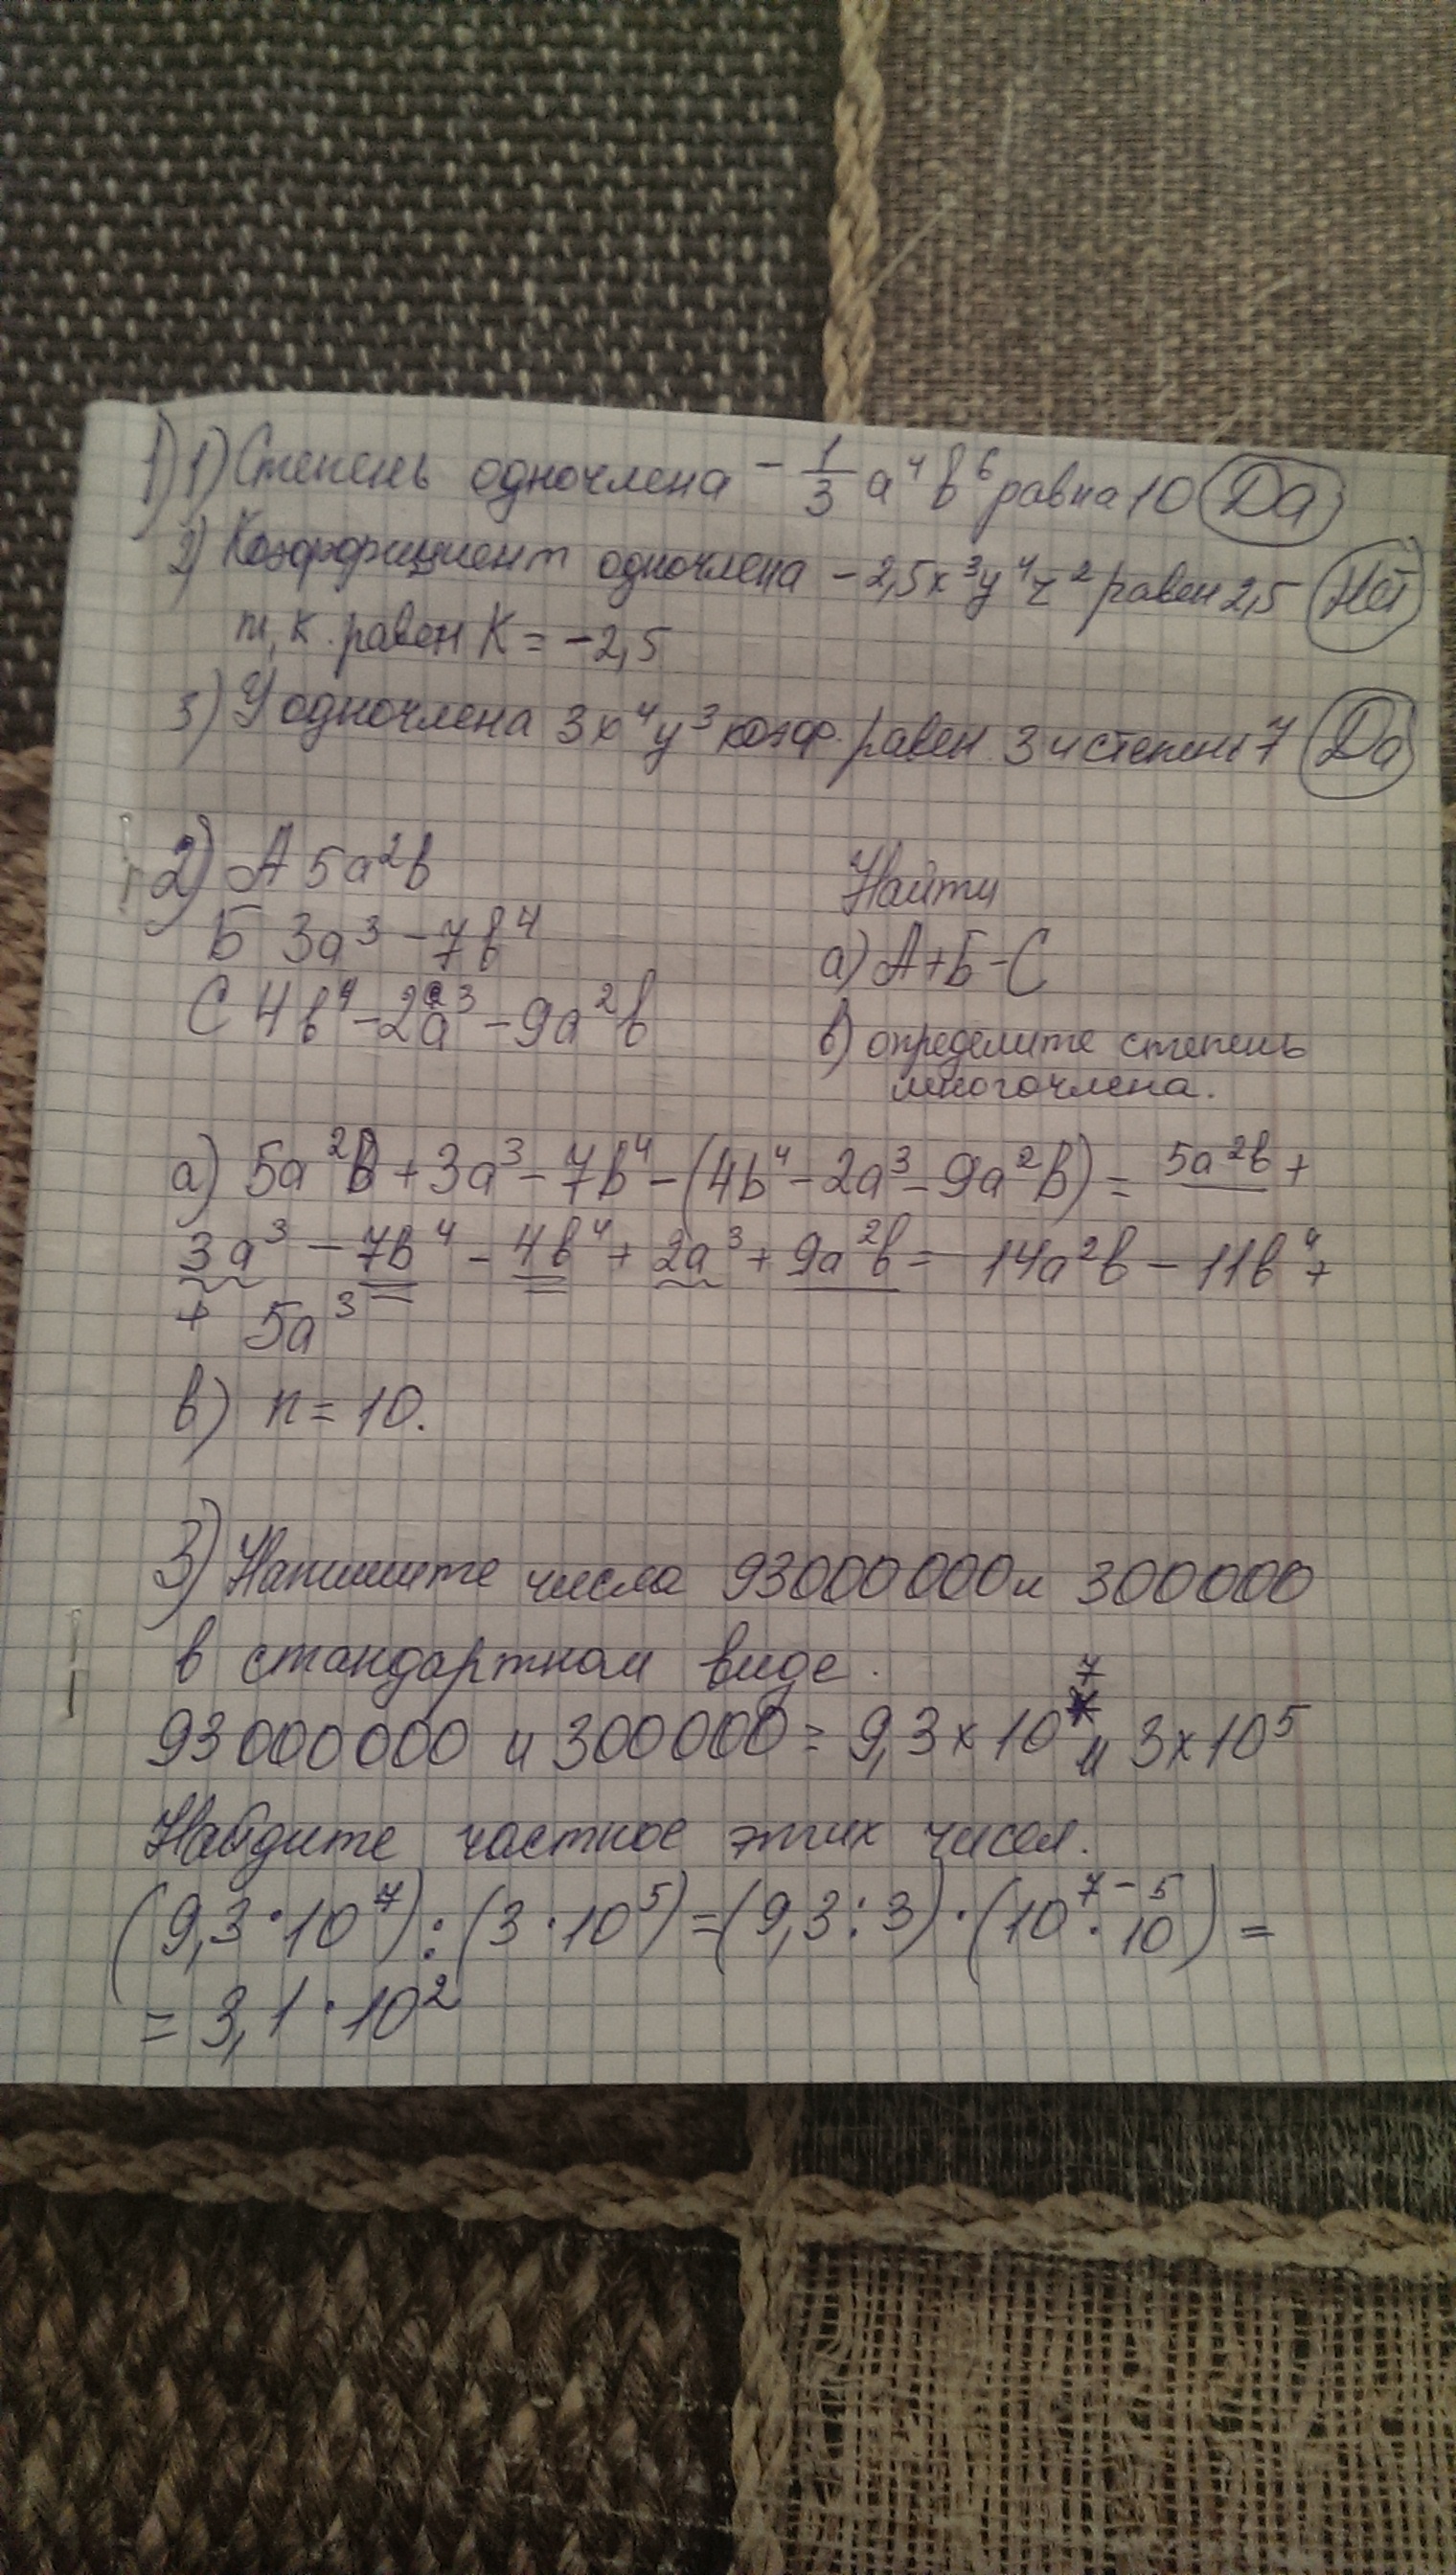 1) 1) Степень одночлена -1/3 a⁴b⁶ равна 10 Да
2) Коэффициент одночлена -2,5x³y⁴z² равен 2,5 Нет
т, к. равен K = -2,5
3) У одночлена 3x⁴y³ коэф. равен 3 и степень 7 Да
2) А 5a²b
Б 3a³ - 7b⁴
С 4b⁴ - 2a³ - 9a²b
Найти
а) А+Б-С
в) определите степень
многочлена.
а) 5a²b + 3a³ - 7b⁴ - (4b⁴ - 2a³ - 9a²b) = 5a²b +
3a³ - 7b⁴ - 4b⁴ + 2a³ + 9a²b = 14a²b - 11b⁴ +
+ 5a³
в) n = 10.
3) Напишите числа 93000000 и 300000
в стандартном виде.
93000000 и 300000 = 9,3 x 10⁷ и 3 x 10⁵
Найдите частное этих чисел.
(9,3 · 10⁷) : (3 · 10⁵) = (9,3 : 3) · (10⁷⁻⁵ · 10) =
= 3,1 · 10²